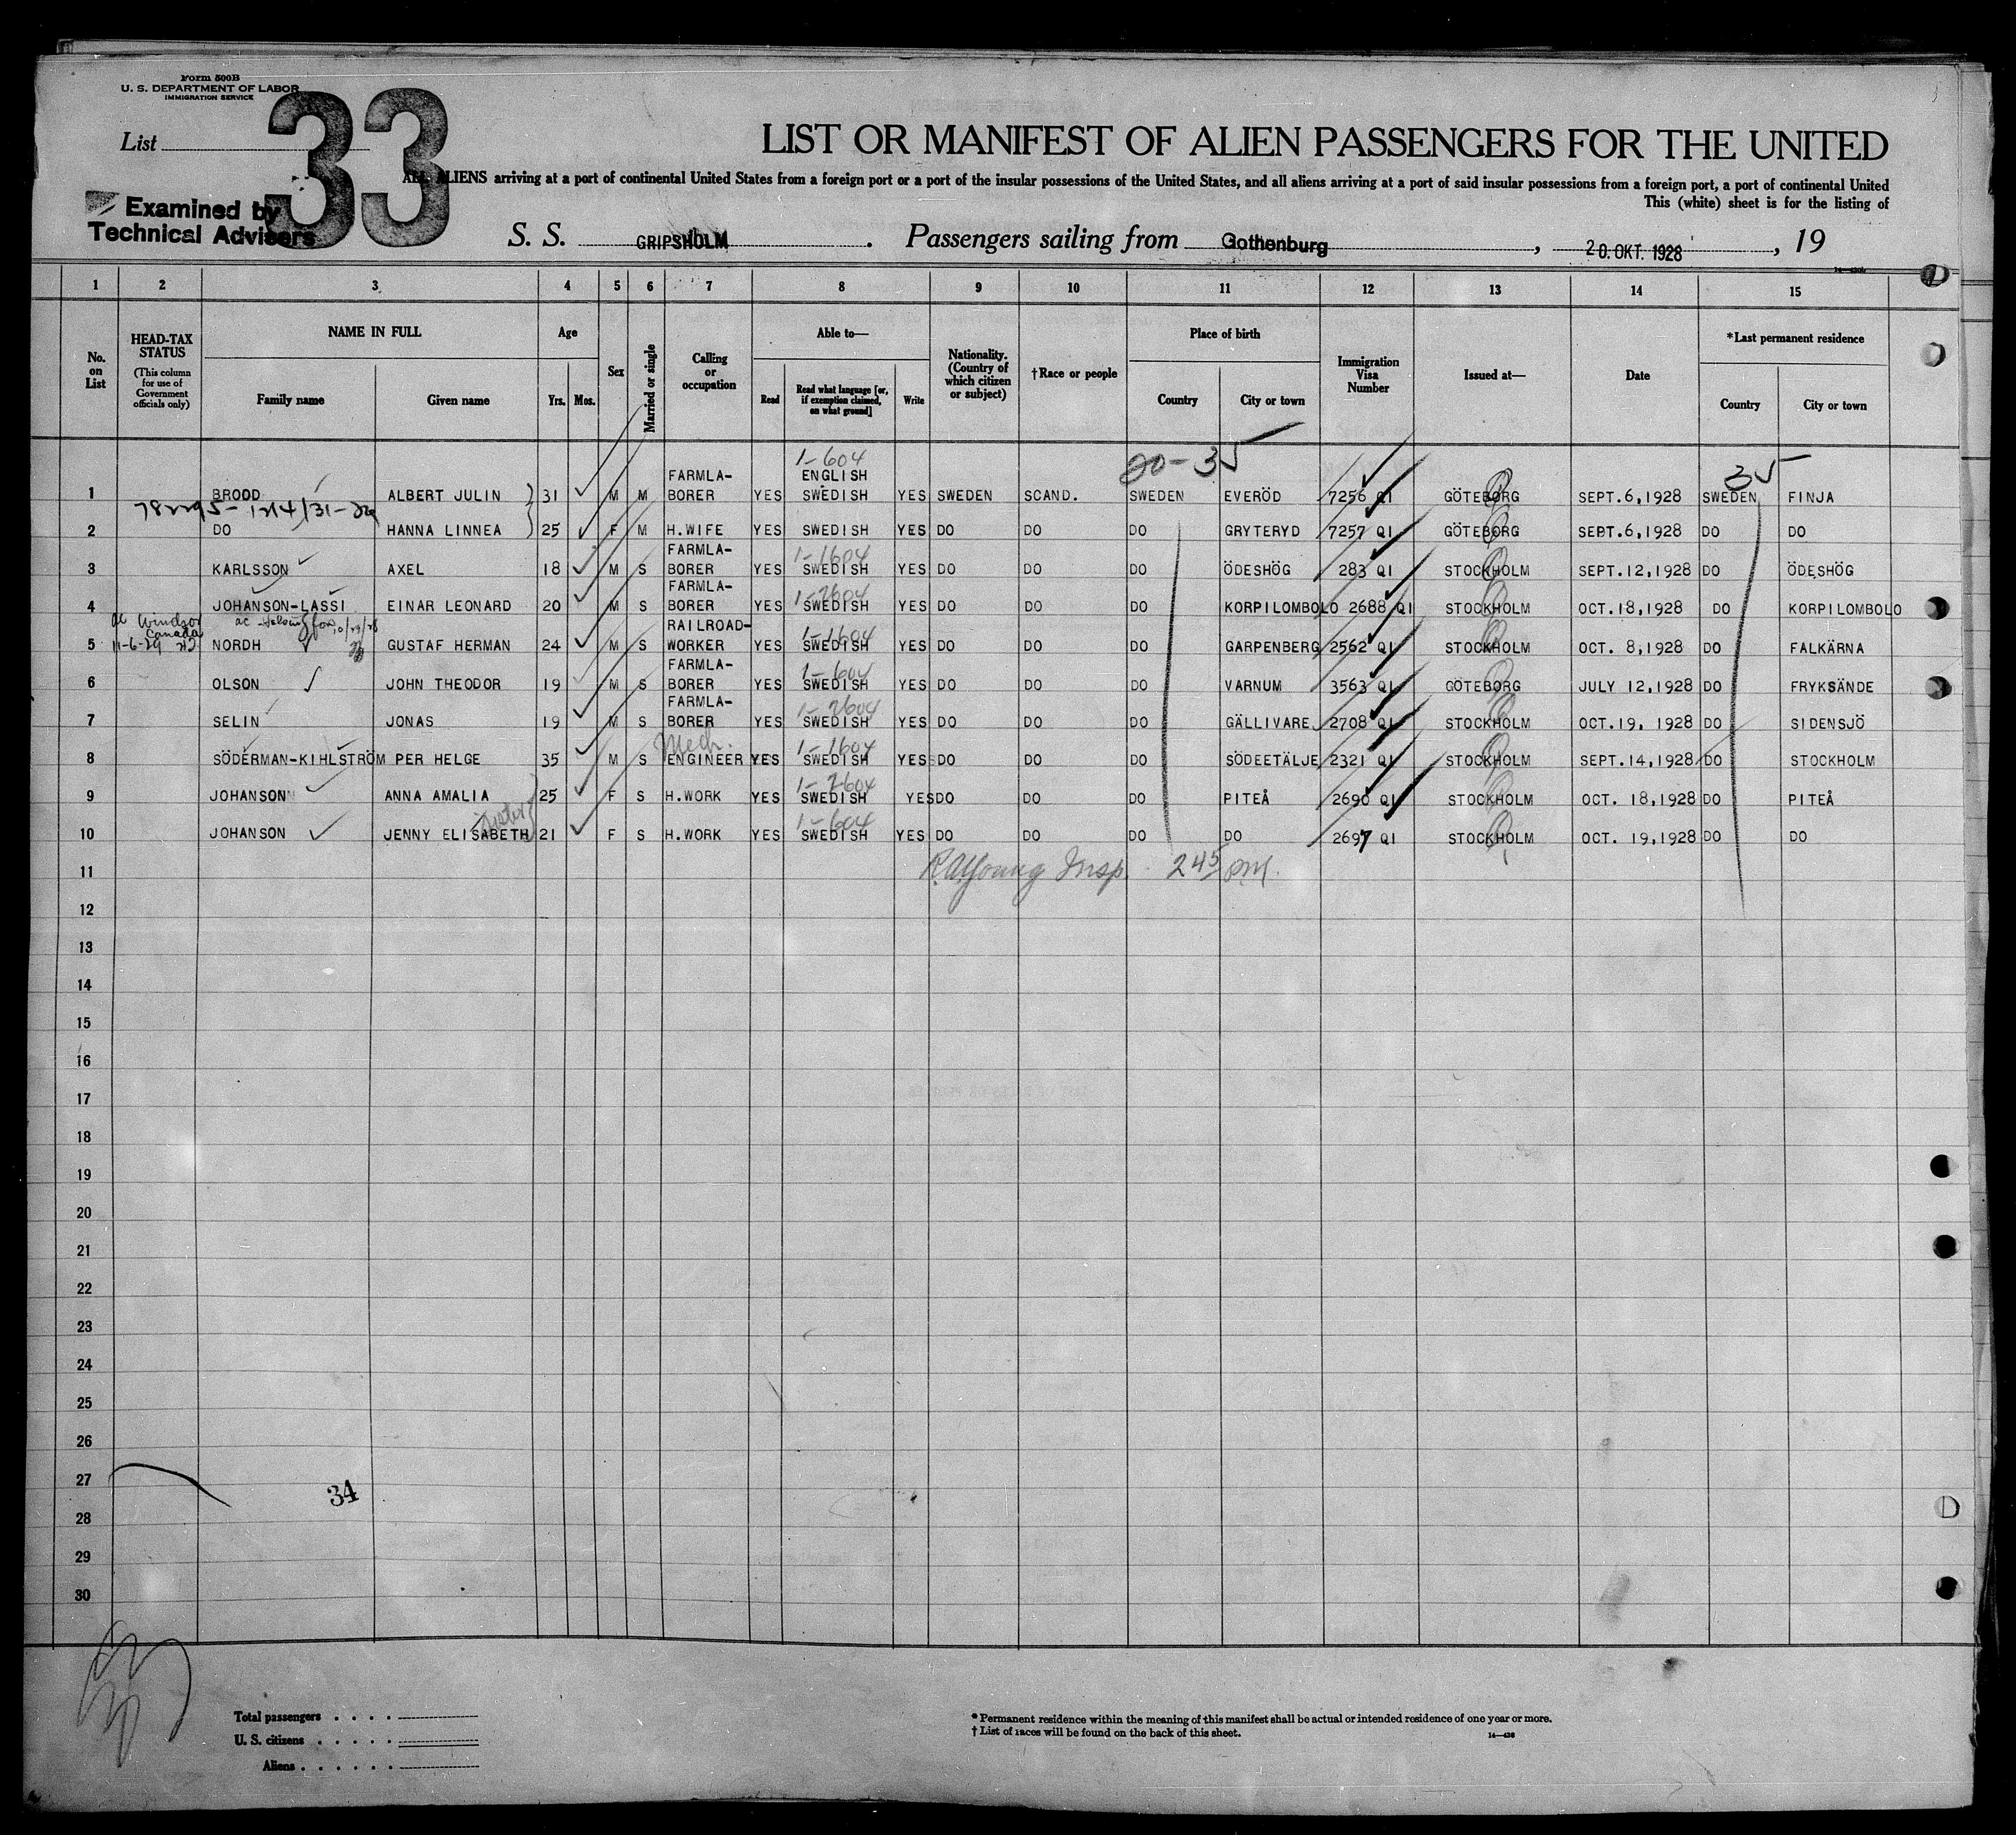 Form 500B
U. S. DEPARTMENT OF LABOR
IMMIGRATION SERVICE
List
33
LIST OR MANIFEST OF ALIEN PASSENGERS FOR THE UNITED
ALL ALIENS arriving at a port of continental United States from a foreign port or a port of the insular possessions of the United States, and all aliens arriving at a port of said insular possessions from a foreign port, a port of continental United
This (white) sheet is for the listing of
Examined by
Technical Advisers
S. S. GRIPSHOLM . Passengers sailing from Gothenburg , 20. OKT. 1928 , 19
1 2 3 4 5 6 7 8 9 10 11 12 13 14 15
No. on List
HEAD-TAX STATUS (This column for use of Government officials only)
NAME IN FULL
Family name Given name
Age
Yrs. Mos.
Sex
Married or single
Calling or occupation
Able to—
Read
Read what language [or, if exemption claimed, on what ground]
Write
Nationality. (Country of which citizen or subject)
†Race or people
Place of birth
Country City or town
Immigration Visa Number
Issued at—
Date
*Last permanent residence
Country City or town
1-604 20-35 35
FARMLA- ENGLISH
1 BROOD ALBERT JULIN 31 M M BORER YES SWEDISH YES SWEDEN SCAND. SWEDEN EVERÖD 7256 QI GÖTEBORG SEPT.6,1928 SWEDEN FINJA
2 DO HANNA LINNEA 25 F M H.WIFE YES SWEDISH YES DO DO DO GRYTERYD 7257 QI GÖTEBORG SEPT.6,1928 DO DO
FARMLA- 1-1604
3 KARLSSON AXEL 18 M S BORER YES SWEDISH YES DO DO DO ÖDESHÖG 283 QI STOCKHOLM SEPT.12,1928 DO ÖDESHÖG
FARMLA- 1-2604
4 JOHANSON-LASSI EINAR LEONARD 20 M S BORER YES SWEDISH YES DO DO DO KORPILOMBOLO 2688 QI STOCKHOLM OCT.18,1928 DO KORPILOMBOLO
Windsor Canada 11-6-29 10/29/28
RAILROAD- 1-1604
5 NORDH GUSTAF HERMAN 24 M S WORKER YES SWEDISH YES DO DO DO GARPENBERG 2562 QI STOCKHOLM OCT. 8,1928 DO FALKÄRNA
FARMLA- 1-604
6 OLSON JOHN THEODOR 19 M S BORER YES SWEDISH YES DO DO DO VARNUM 3563 QI GÖTEBORG JULY 12,1928 DO FRYKSÄNDE
FARMLA- 1-2604
7 SELIN JONAS 19 M S BORER YES SWEDISH YES DO DO DO GÄLLIVARE 2708 QI STOCKHOLM OCT.19, 1928 DO SIDENSJÖ
Mech. 1-1604
8 SÖDERMAN-KIHLSTRÖM PER HELGE 35 M S ENGINEER YES SWEDISH YES DO DO DO SÖDEETÄLJE 2321 QI STOCKHOLM SEPT.14,1928 DO STOCKHOLM
1-2604
9 JOHANSON ANNA AMALIA 25 F S H.WORK YES SWEDISH YES DO DO DO PITEÅ 2690 QI STOCKHOLM OCT. 18,1928 DO PITEÅ
sisters 1-604
10 JOHANSON JENNY ELISABETH 21 F S H.WORK YES SWEDISH YES DO DO DO DO 2697 QI STOCKHOLM OCT. 19,1928 DO DO
11 R.A. Young Insp. 2 45 P.M.
12
13
14
15
16
17
18
19
20
21
22
23
24
25
26
27
34
28
29
30
Total passengers
U. S. citizens
Aliens
* Permanent residence within the meaning of this manifest shall be actual or intended residence of one year or more.
† List of races will be found on the back of this sheet.